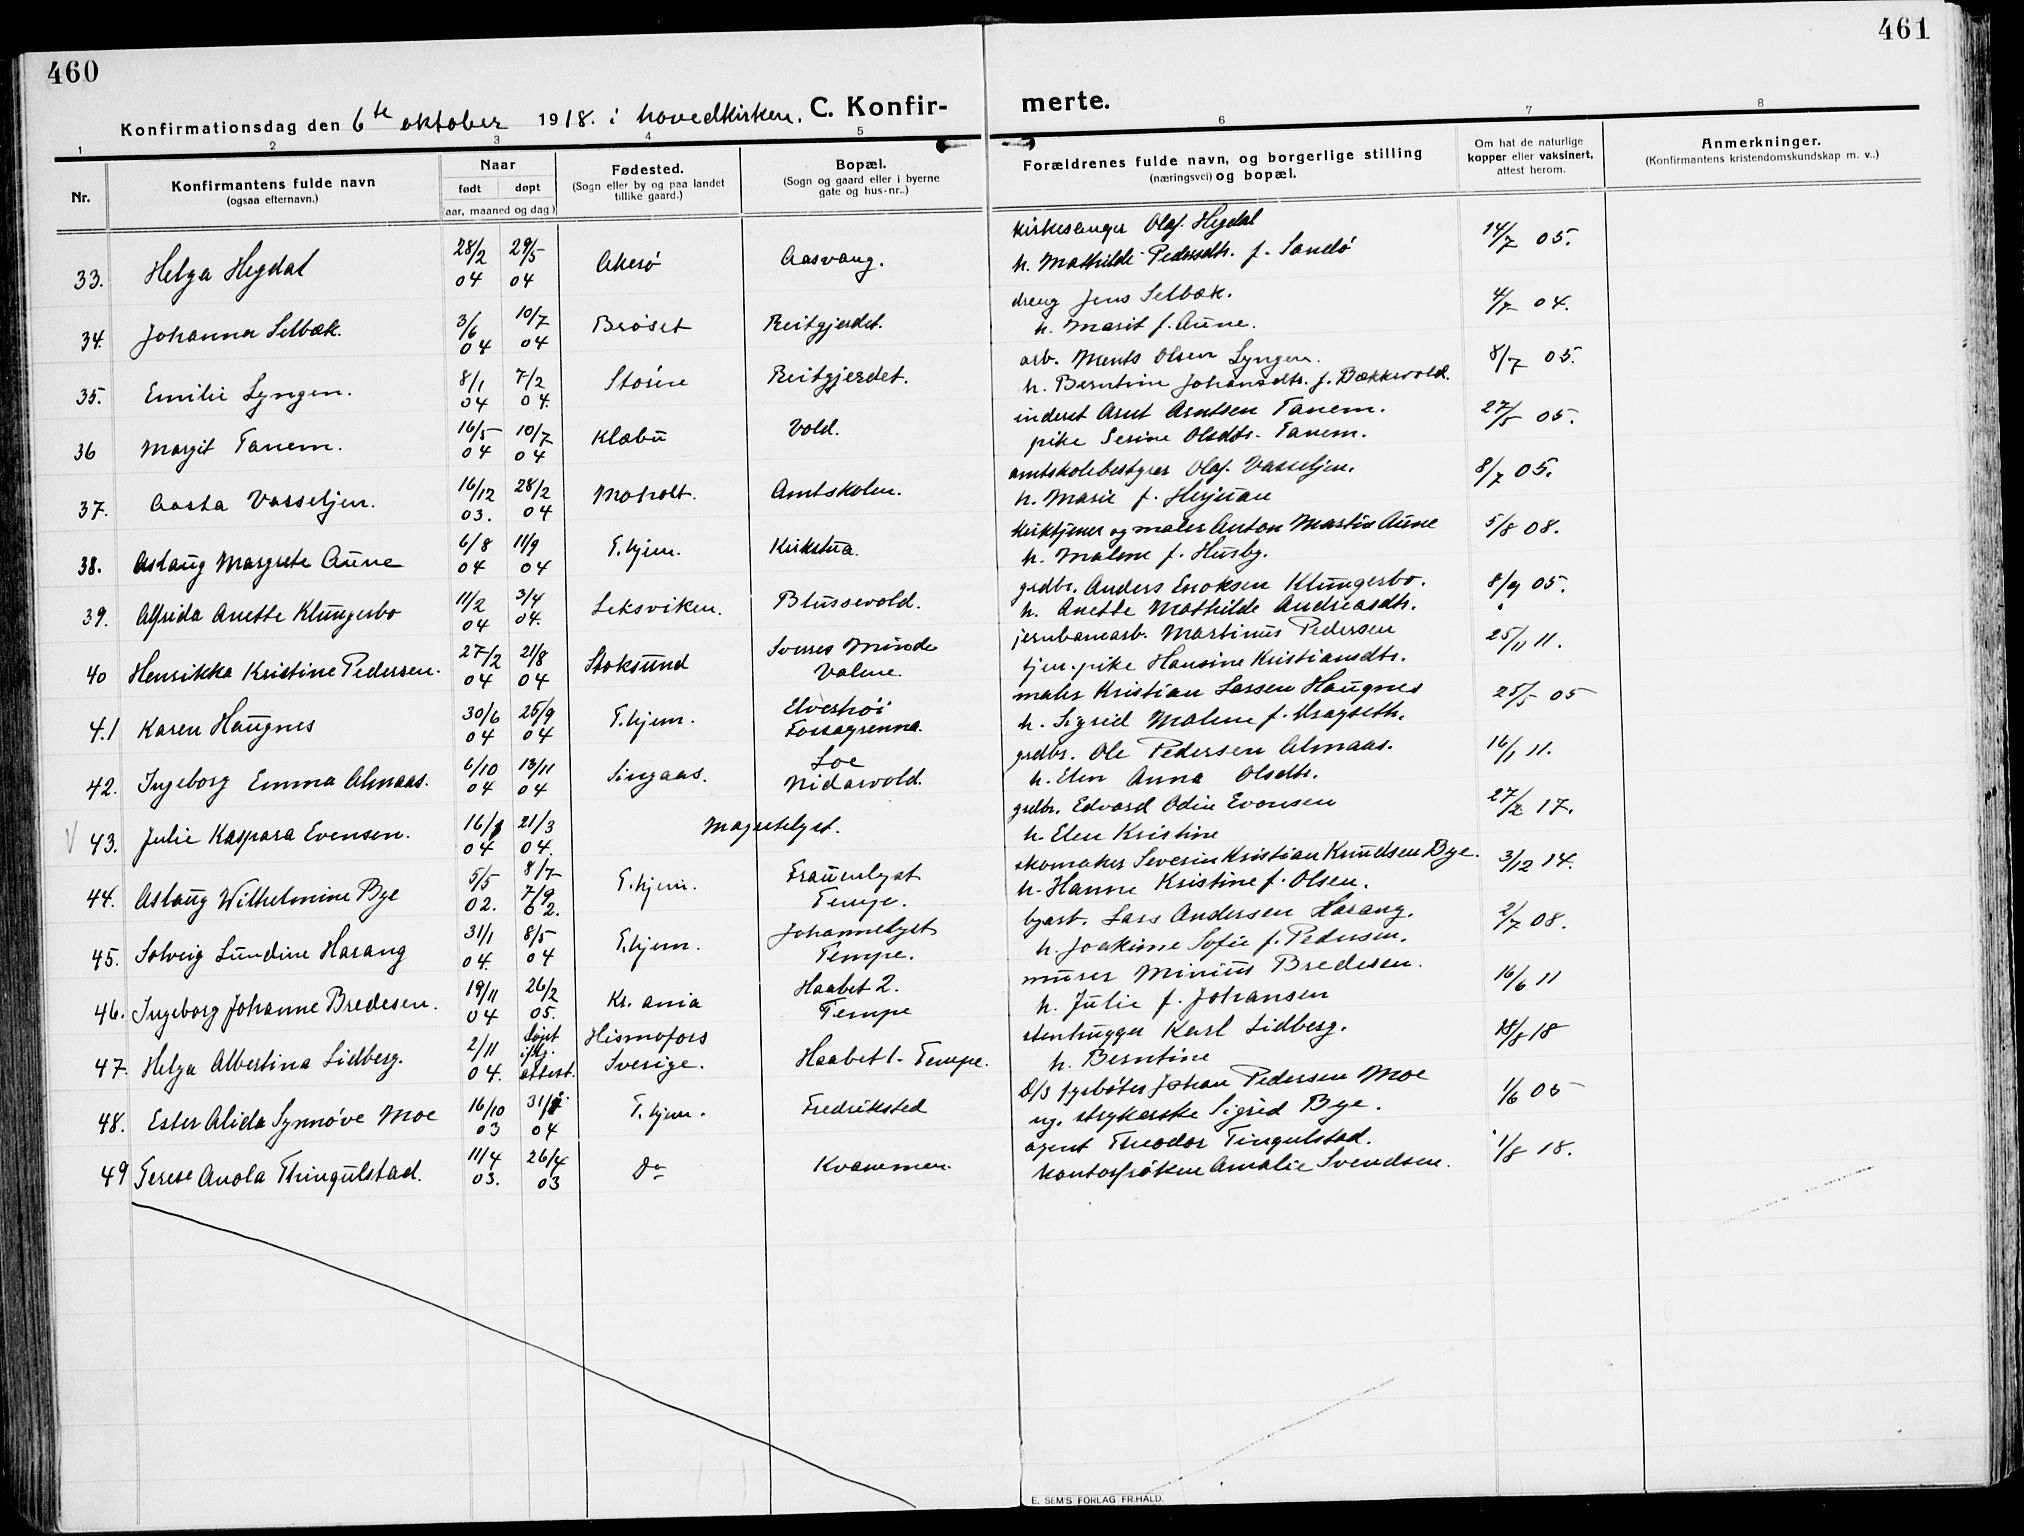 460
461
Konfirmationsdag den 6te oktober 1918. i hovedkirken. C. Konfir-
merte.
1 2 3 4 5 6 7 8
Nr.
Konfirmantens fulde navn
(ogsaa efternavn.)
Naar
født døpt
(aar, maaned og dag)
Fødested.
(Sogn eller by og paa landet
tillike gaard.)
Bopæl.
(Sogn og gaard eller i byerne
gate og hus-nr..)
Forældrenes fulde navn, og borgerlige stilling
(næringsvei) og bopæl.
Om hat de naturlige
kopper eller vaksinert,
attest herom.
Anmerkninger.
(Konfirmantens kristendomskundskap m. v..)
kirkesanger Olaf Hegdal
33. Helga Hegdal 28/2 04 29/5 04 Akerø Aasvang. 14/7 05.
h. Mathilde Pedersdtr. f. Sandø
dreng Jens Selbæk.
34. Johanna Selbæk. 3/6 04 10/7 04 Brøset Reitgjerdet. 4/7 04.
h. Marit f. Aune.
arb. Ments Olsen Lyngen.
35. Emilie Lyngen. 8/1 04 7/2 04. Støren Reitgjerdet. 8/7 05.
h. Berntine Johansdtr. f. Bækkvold.
inderst Arnt Arntsen Tanem.
36 Margit Tanem. 16/5 04 10/7 04 Klæbu Vold. 27/5 05.
pike Serine Olsdtr. Tanem.
amtskolebestyrer Olaf Vasseljen.
37. Aasta Vasseljen. 16/12 03. 28/2 04 Moholt. Amtskolen. 8/7 05.
h. Marie f. Herjuan
kirktjener og maler Anton Martin Aune
38. Aslaug Margrete Aune 6/8 04 11/9 04 T.hjem. Kirkstua. 5/8 08.
h. Malene f. Husby.
grdbr. Anders Enoksen Klungerbo.
39. Alfrida Anette Klungerbo 11/2 04 3/4 04. Leksviken. Blussevold. 8/9 05.
h. Anette Mathilde Andreasdtr.
jernbanearb. Martinus Pedersen
40 Henrikka Kristine Pedersen. 27/2 04 21/8 04 Stoksund Sverres Minde Valene. 25/11 11.
tjen. pike Hansine Kristiansdtr.
maler Kristian Larsen Haugnes
41 Karen Haugnes 30/6 04 25/9 04 T.hjem. Elveshøi Fossagrenna. 25/5 05
h. Sigrid Malene f. Dragseth.
grdbr. Ole Pedersen Almaas.
42. Ingeborg Emma Almaas. 6/10 04 13/11 04 Singaas. Loe Nidarvold. 16/1 11.
h. Elen Anna Olsdtr.
grdbr. Edvard Odin Evensen
V 43. Julie Kaspara Evensen. 16/1 04 21/3 04. Magretelyst. 27/2 17.
h. Elen Kristine
skomaker Severin Kristian Knudsen Bye.
44. Aslaug Wilhelmine Bye 5/5 02. 8/7 7/9 02. T.hjem. Frauenlyst Tempe. 3/12 14.
h. Hanne Kristine f. Olsen.
byarb. Lars Andersen Harang.
45. Solveig Lundine Harang 31/1 04. 8/5 04 T.hjem. Johannelyst Tempe. 2/7 08.
h. Joakime Sofie f. Pedersen.
murer Minius Bredesen.
46. Ingeborg Johanne Bredesen. 19/11 04 26/2 05. Kr. ania Haabet 2. Tempe 16/6 11
h. Julie f. Johansen
stenhugger Karl Lidberg.
47. Helga Albertina Lidberg. 2/11 04. døpt iflg. attest. Hismofors Sverige. Haabet 1. Tempe. 18/8 18
h. Berntine
D/S fyrbøter Johan Pedersen Moe
48. Ester Alida Synnøve Moe 16/10 03 31/1 04 T. hjem. Fredriksted 1/6 05
ug. strykerske Sigrid Bye.
agent Theodor Tingulstad.
49 Terese Anola Thingulstad. 11/4 03. 26/4 03 Do Kvammen. 1/8 18.
kontorfrøken Amalie Svendsen.
E. SEM'S FORLAG FR.HALD.